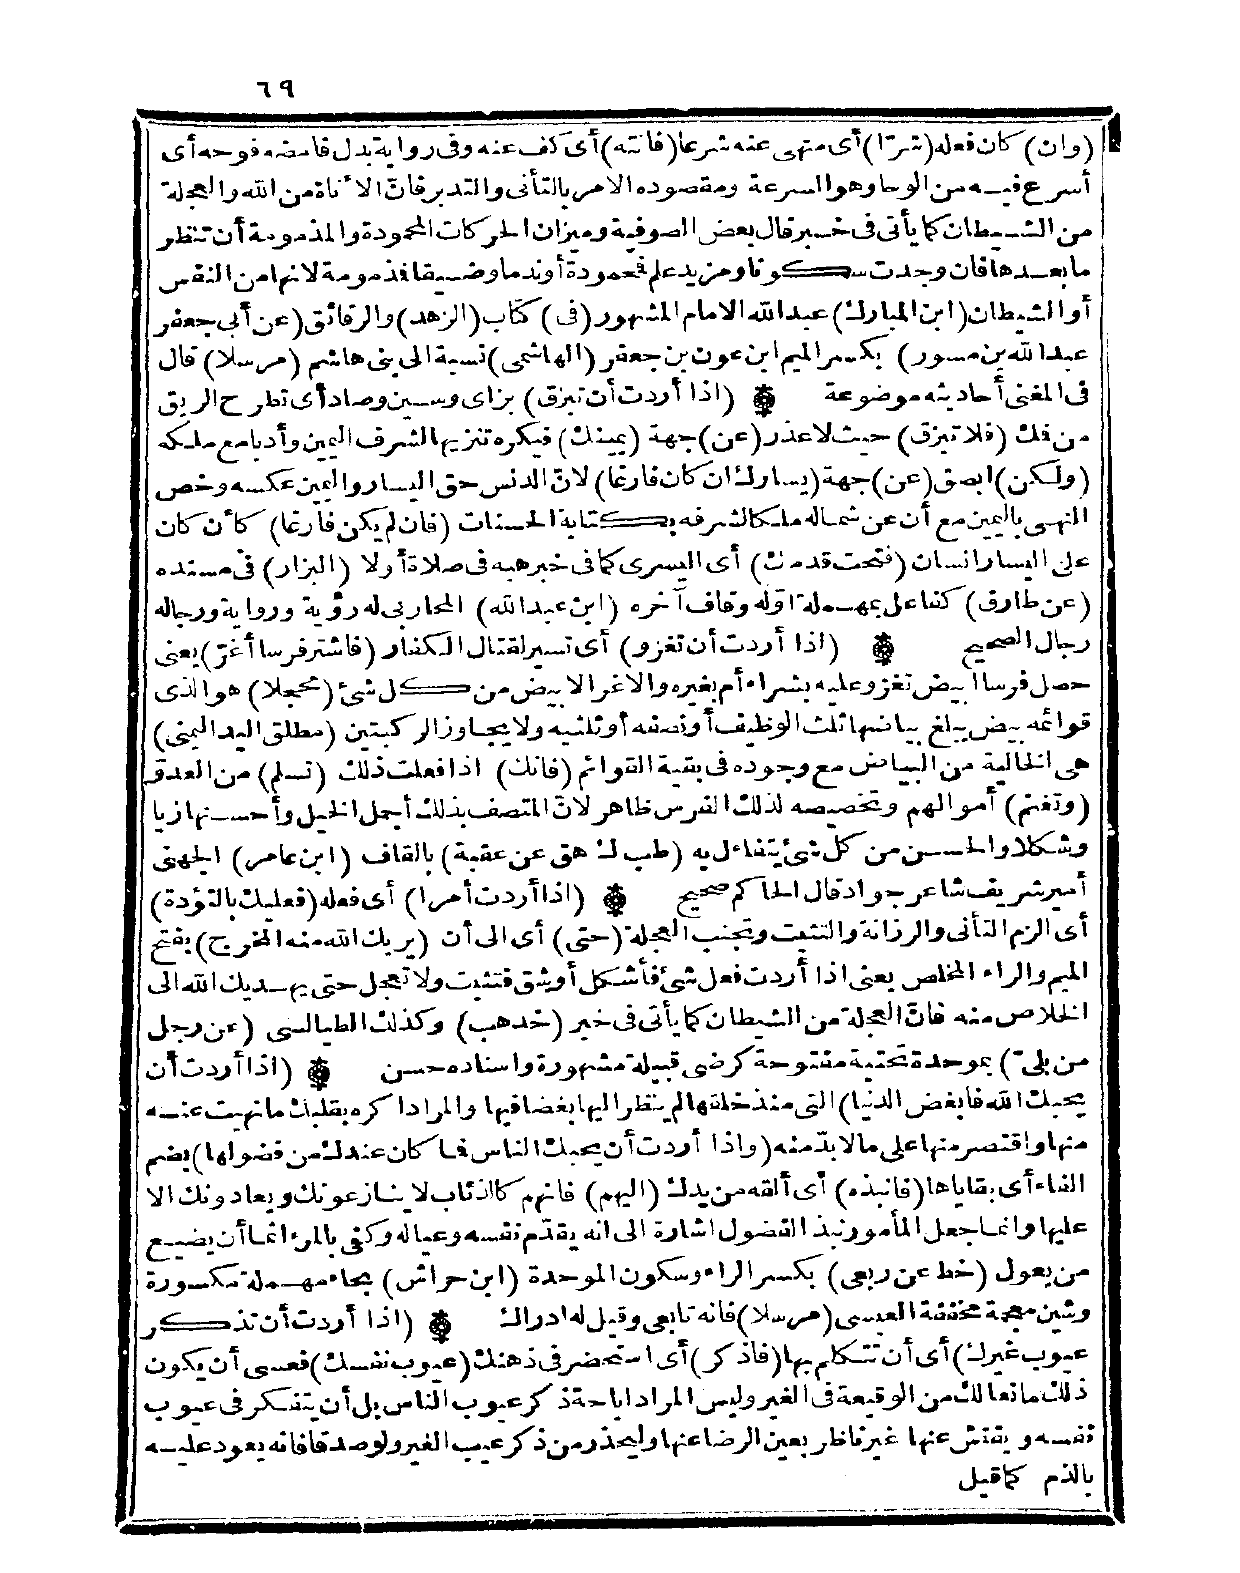 ٦٩
(وان) كان فعله (شرّا) أى منهى عنه شرعا (فانته) أى كف عنه وفى رواية بدل فامضه فوحه أى
أسرع فيه من الوحا وهو السرعة ومقصوده الامر بالتأنى والتدبر فانّ الاناة من الله والعجلة
من الشيطان كما يأتى فى خبر قال بعض الصوفية وميزان الحركات المحمودة والمذمومة أن تنظر
ما بعدها فان وجدت سكونا ومزيد علم فمحمودة أو ندما وضيقا فذمومة لانها من النفس
أو الشيطان (ابن المبارك) عبد الله الامام المشهور (فى) كتاب (الزهد) والرقائق (عن أبى جعفر
عبد الله بن مسور) بكسر الميم ابن عون بن جعفر (الهاشمى) نسبة الى بنى هاشم (مرسلا) قال
فى المغنى أحاديثه موضوعة ۞ (اذا أردت أن تبزق) بزاى وسين وصاد أى تطرح الريق
من فمك (فلا تبزق) حيث لا عذر (عن) جهة (يمينك) فيكره تنزيها لشرف اليمين وأدبا مع ملكه
(ولكن) ابصق (عن) جهة (يسارك ان كان فارغا) لانّ الدنس حق اليسار واليمين عكسه وخص
النهى باليمين مع أن عن شماله ملكا لشرفه بكتابة الحسنات (فان لم يكن فارغا) كأن كان
على اليسار انسان (فتحت قدمك) أى اليسرى كما فى خبر هبه فى صلاة أولا (البزار) فى مسنده
(عن طارق) كفاعل بمهملة اوّله وقاف آخره (ابن عبد الله) المحاربى له رؤية ورواية ورجاله
رجال الصحيح ۞ (اذا أردت أن تغزو) أى تسير لقتال الكفار (فاشتر فرسا أغرّ) يعنى
حصل فرسا ابيض تغزو عليه بشراء أم بغيره والاغر الابيض من كل شئ (محجلا) هو الذى
قوائمه بيض يبلغ بياضها ثلث الوظيف أو نصفه أو ثلثيه ولا يجاوز الركبتين (مطلق اليد اليمنى)
هى الخالية من البياض مع وجوده فى بقية القوائم (فانك) اذا فعلت ذلك (تسلم) من العدوّ
(وتغنم) أموالهم وتخصيصه لذلك الفرس ظاهر لانّ المتصف بذلك أجمل الخيل وأحسنها زيا
وشكلا والحسن من كل شئ يتفاءل به (طب ك هق عن عقبة) بالقاف (ابن عامر) الجهنى
أمير شريف شاعر جواد قال الحاكم صحيح ۞ (اذا أردت أمرا) أى فعله (فعليك بالتؤدة)
أى الزم التأنى والرزانة والتثبت وتجنب العجلة (حتى) أى الى أن (يريك الله منه المخرج) بفتح
الميم والراء المخلص يعنى اذا أردت فعل شئ فأشكل أو شق فتثبت ولا تعجل حتى يهديك الله الى
الخلاص منه فانّ العجلة من الشيطان كما يأتى فى خبر (خد هب) وكذلك الطيالسى (عن رجل
من بلىّ) بموحدة تحتية مفتوحة كرضى قبيلة مشهورة واسناده حسن ۞ (اذا أردت أن
يحبك الله فابغض الدنيا) التى منذ خلقها لم ينظر اليها بغضا فيها والمراد اكره بقلبك ما نهيت عنه
منها واقتصر منها على مالا بدّ منه (واذا أردت أن يحبك الناس فما كان عندك من فضولها) بضم
الفاء أى بقاياها (فانبذه) أى ألقه من يدك (اليهم) فانهم كالذئاب لا ينازعونك ويعادونك الا
عليها وانما جعل المأمور نبذ الفضول اشارة الى انه يقدّم نفسه وعياله وكفى بالمرء اثما أن يضيع
من يعول (خط عن ربعى) بكسر الراء وسكون الموحدة (ابن حراش) بحاء مهملة مكسورة
وشين معجمة مخففة العبسى (مرسلا) فانه تابعى وقيل له ادراك ۞ (اذا أردت أن تذكر
عيوب غيرك) أى أن تتكلم بها (فاذكر) أى استحضر فى ذهنك (عيوب نفسك) فعسى أن يكون
ذلك مانعا لك من الوقيعة فى الغير وليس المراد اباحة ذكر عيوب الناس بل أن يتفكر فى عيوب
نفسه ويفتش عنها غير ناظر بعين الرضا عنها وليحذر من ذكر عيب الغير ولو صدقا فانه يعود عليه
بالذم كما قيل